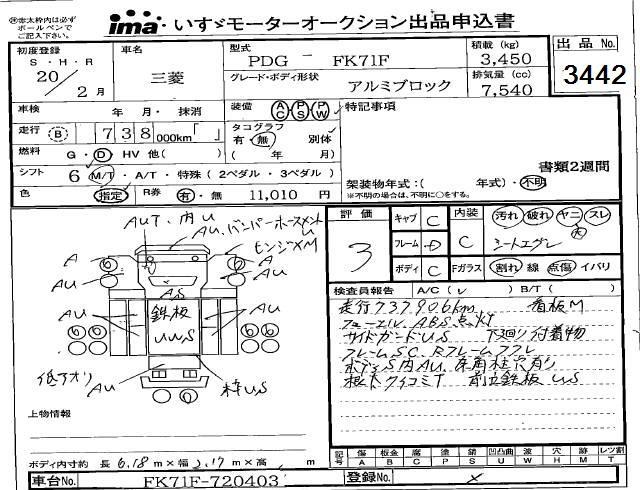 ※赤太枠内は必ずボールペンでご記入下さい。
ima・いすゞモーターオークション出品申込書
初度登録 S・H・R 20／2月
車名 三菱
型式 PDG － FK71F
積載 (kg) 3,450
出品No. 3442
グレード・ボディ形状 アルミブロック
排気量 (cc) 7,540
車検 年 月・抹消
装備 AC PS PW
特記事項
走行 B 738 000km「 」
タコグラフ 有・無 別体 ( 年 月)
燃料 G・D HV 他( )
書類2週間
シフト 6 M/T・A/T・特殊(2ペダル・3ペダル)
架装物年式：( 年式)・不明
※不明の場合は、不明に○をする。
色 指定 R券 有・無 11,010 円
評価 3
キャブ C
内装 C
汚れ 破れ ヤニ スレ
フレーム D
シートエグレ
ボディ C
Fガラス 割れ 線 点傷 イバリ
検査員報告 A/C( レ ) B/T( )
走行737,906km 看板M
フューエル、ABS点灯
サイドガードUS 下廻り付着物
フレームSC、Rフレーム
ボディS内AU、床角柱穴有り
クイコミT 前立鉄板 US
AUT、内U
AU、バンパーホースメントU
ヒンジXM
A
A
AU
AU
AS
鉄板
UWS
AU
AU
低下オリ
AU
枠US
上物情報
ボディ内寸約 長 6.18 m×幅 2.17 m×高 m
記号 傷A 板金B 腐C 塗P 錆S 凹凸曲U 波W 穴H 跡M レツ割T
車台No. FK71F-720403
登録No. ×